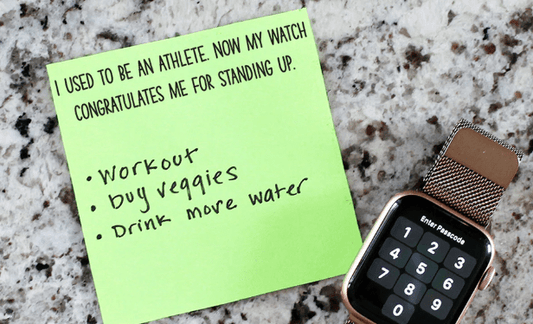 I USED TO BE AN ATHLETE. NOW MY WATCH
CONGRATULATES ME FOR STANDING UP.
• Workout
• buy veggies
• Drink more water
Enter Passcode
1 2 3
4 5 6
7 8 9
0